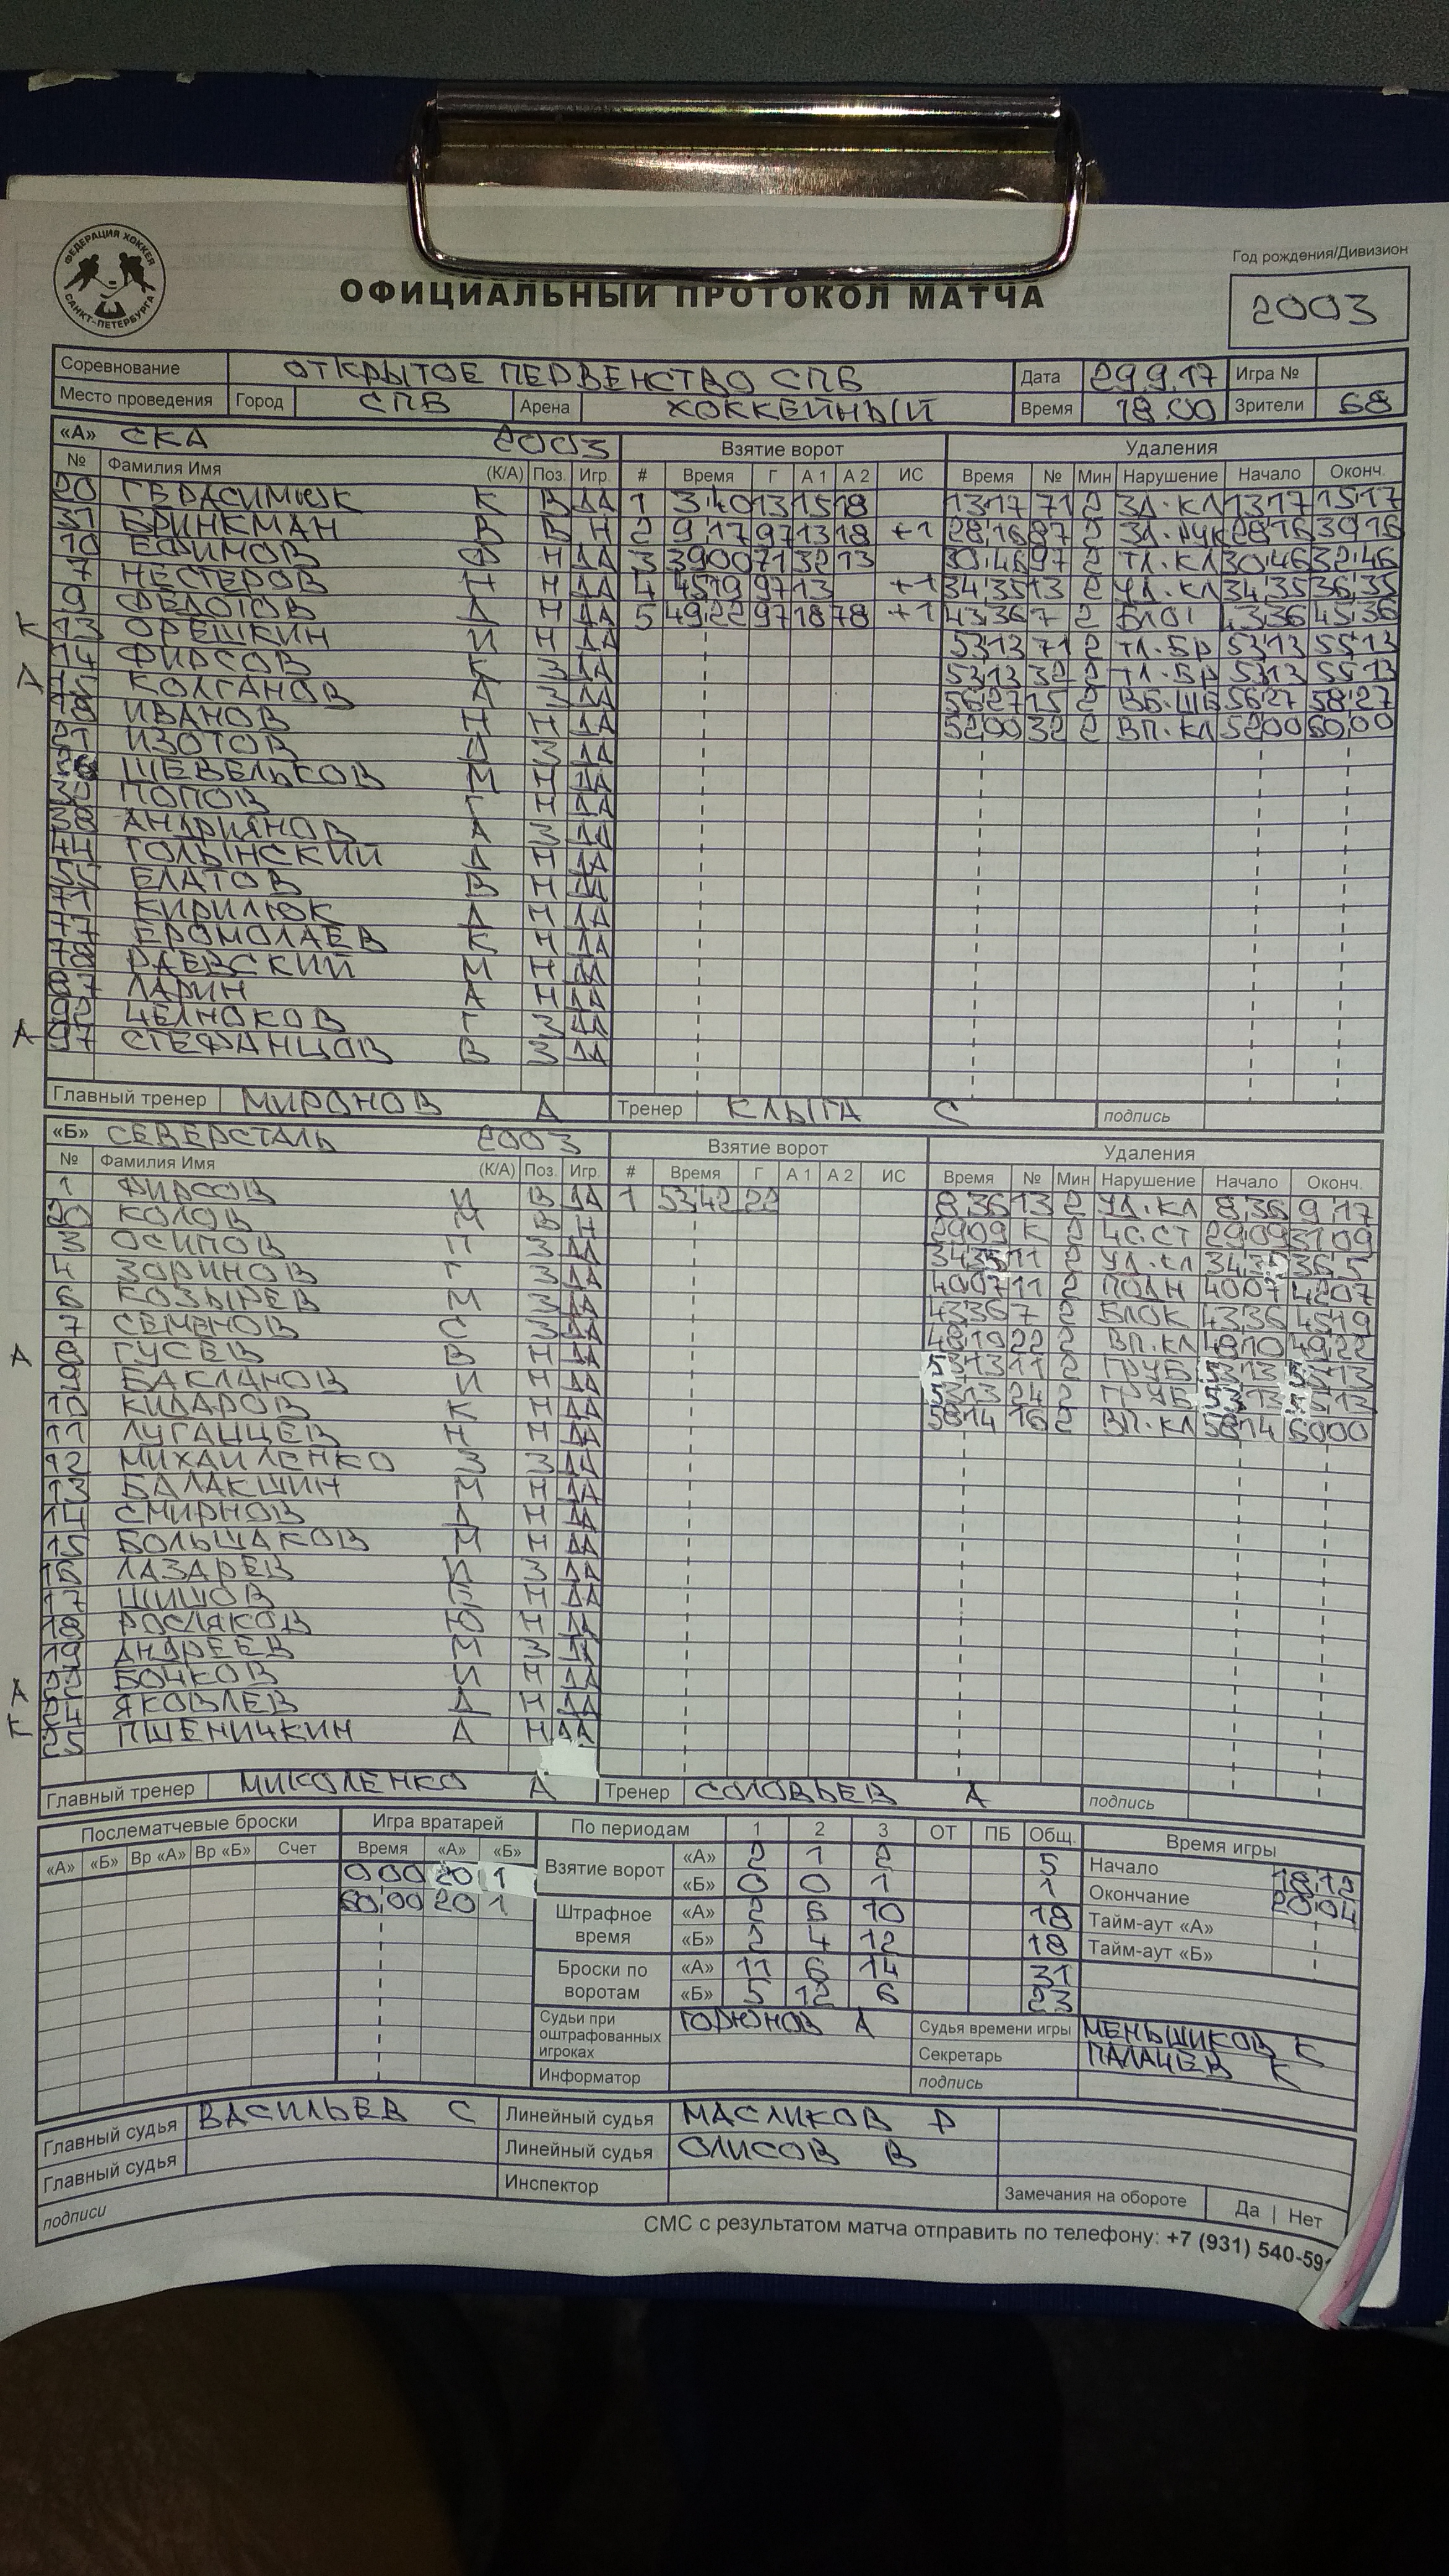 ФЕДЕРАЦИЯ ХОККЕЯ САНКТ-ПЕТЕРБУРГА
Год рождения/Дивизион
ОФИЦИАЛЬНЫЙ ПРОТОКОЛ МАТЧА
2003
Соревнование ОТКРЫТОЕ ПЕРВЕНСТВО СПБ Дата 29.9.17 Игра №
Место проведения Город СПБ Арена ХОККЕЙНЫЙ Время 18.00 Зрители 68
«А» СКА 2003 Взятие ворот Удаления
№ Фамилия Имя (К/А) Поз. Игр. # Время Г А 1 А 2 ИС Время № Мин Нарушение Начало Оконч.
20 ГЕРАСИМЮК К В ДА 1 3 40 13 15 18 13 17 71 2 ЗД.КЛ 13 17 15 17
31 БРИНКМАН В В Н 2 9 17 97 13 18 +1 28 16 87 2 ЗД.РУК 28 16 30 16
10 ЕФИМОВ Ф Н ДА 3 39 00 71 32 13 30 46 97 2 ТЛ.КЛ 30 46 32 46
7 НЕСТЕРОВ Н Н ДА 4 45 19 97 13 +1 34 35 13 2 УД.КЛ 34 35 36 35
9 ФЕДОТОВ Д Н ДА 5 49 22 97 18 78 +1 43 36 7 2 43 36 45 36
К 13 ОРЕШКИН И Н ДА 53 13 71 2 ТЛ.БР 53 13 55 13
14 ФИРСОВ К З ДА 53 13 32 2 ТЛ.БР 53 13 55 13
А 15 КОЛГАНОВ А З ДА 56 27 15 2 ВБ.ШБ 56 27 58 27
18 ИВАНОВ Н Н ДА 52 00 32 2 ВП.КЛ 52 00 60 00
21 ИЗОТОВ Д З ДА
ШЕВЕЛЬКОВ М Н ДА
ПОПОВ Г Н ДА
38 АНДРИЯНОВ А З ДА
44 ГОЛЫНСКИЙ Д Н ДА
ЕЛАТОВ В Н ДА
71 КИРИЛЮК Д Н ДА
77 ЕРОМОЛАЕВ К Н ДА
78 РАЕВСКИЙ М Н ДА
87 ЛАРИН А Н ДА
ЧЕЛНОКОВ Г З ДА
А 97 СТЕФАНЦОВ В З ДА
Главный тренер МИРОНОВ А Тренер КЛЫГА С подпись
«Б» СЕВЕРСТАЛЬ 2003 Взятие ворот Удаления
№ Фамилия Имя (К/А) Поз. Игр. # Время Г А 1 А 2 ИС Время № Мин Нарушение Начало Оконч.
1 ФИРСОВ И В ДА 1 53 42 22 8 36 13 2 УД.КЛ 8 36 9 17
20 КОЛОВ М В Н 29 09 К 2 ЧС.СТ 29 09 31 09
3 ОСИПОВ П З ДА 34 35 11 2 УД.КЛ 34 35
4 ЗОРИНОВ Г З ДА 40 07 11 2 ПОДН 40 07 42 07
6 КОЗЫРЕВ М З ДА 43 36 7 2 БЛОК 43 36 45 19
7 СЕМЕНОВ С З ДА 48 10 22 2 ВП.КЛ 48 10 49 22
А 8 ГУСЕВ В Н ДА 53 13 11 2 ГРУБ 53 13 55 13
9 БАКЛАНОВ И Н ДА 53 13 24 2 ГРУБ 53 13 55 13
10 КИДАРОВ К Н ДА 58 14 16 2 ВП.КЛ 58 14 60 00
11 ЛУГАНЦЕВ Н Н ДА
12 МИХАЙЛЕНКО З З ДА
13 БАЛАКШИН М Н ДА
14 СМИРНОВ Д Н ДА
15 БОЛЬШАКОВ М Н ДА
16 ЛАЗАРЕВ И З ДА
17 ШИШОВ Е Н ДА
18 РОСЛЯКОВ Ю Н ДА
19 АНДРЕЕВ М З ДА
А 22 БОЧКОВ И Н ДА
К 24 ЯКОВЛЕВ Д Н ДА
25 ПШЕНИЧКИН А Н ДА
Главный тренер МИКОЛЕНКО А Тренер СОЛОВЬЕВ А подпись
Послематчевые броски Игра вратарей По периодам 1 2 3 ОТ ПБ Общ. Время игры
«А» «Б» Вр «А» Вр «Б» Счет Время «А» «Б» Взятие ворот «А» 2 1 2 5 Начало 18 12
0 00 20 1 «Б» 0 0 1 1 Окончание 20 04
60 00 20 1 Штрафное время «А» 2 6 10 18 Тайм-аут «А»
«Б» 2 4 12 18 Тайм-аут «Б»
Броски по воротам «А» 11 6 14 31
«Б» 5 12 6 23
Судьи при оштрафованных игроках ГОРЮНОВ А Судья времени игры МЕНЬШИКОВ К
Секретарь ПАЛАЧЕВ К
Информатор подпись
Главный судья ВАСИЛЬЕВ С Линейный судья МАСЛИКОВ Р
Главный судья Линейный судья ОЛИСОВ В
подписи Инспектор Замечания на обороте Да | Нет
СМС с результатом матча отправить по телефону: +7 (931) 540-59